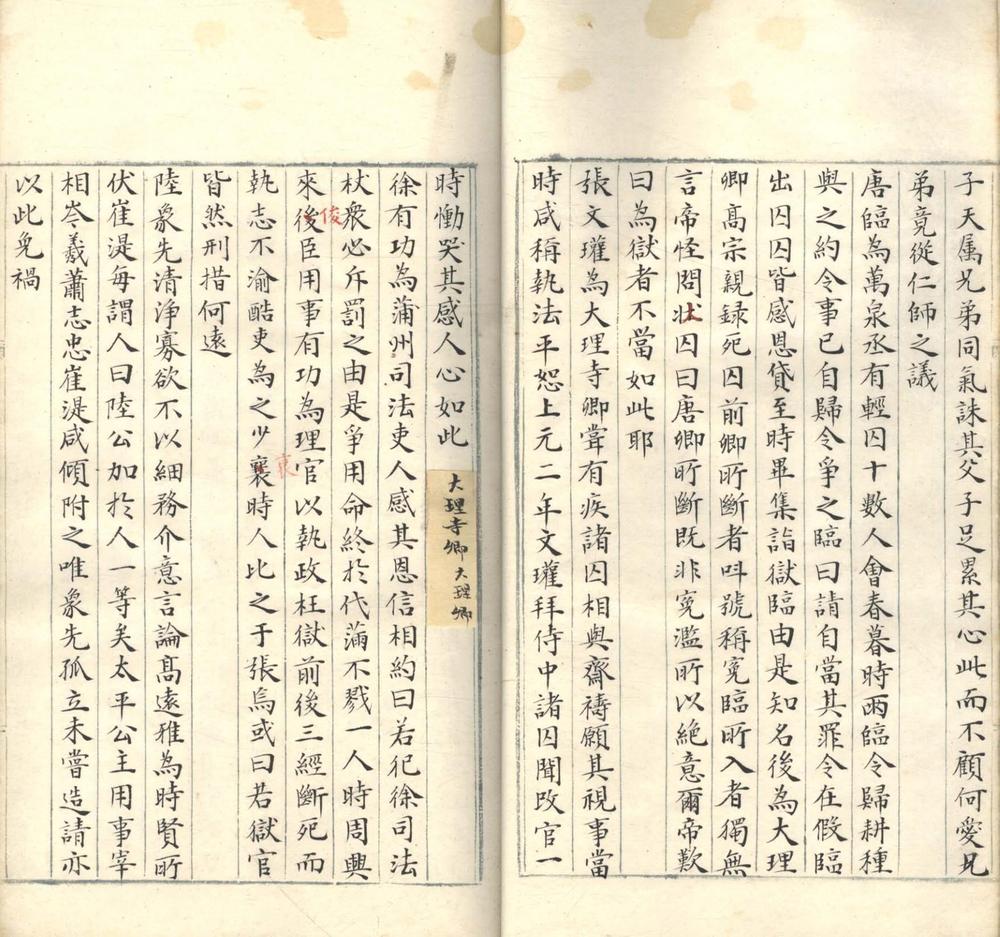 子天属兄弟同氣誅其父子足累其心此而不顧何愛兄
弟竟從仁師之議
唐臨為萬泉丞有輕囚十數人會春暮時雨臨令歸耕種
與之約令事已自歸令爭之臨曰請自當其罪令在假臨
出囚囚皆感恩貸至時畢集詣獄臨由是知名後為大理
卿髙宗親録死囚前卿所斷者呌號稱寃臨所入者獨無
言帝怪問狀囚曰唐卿所斷既非寃濫所以絶意爾帝歎
曰為獄者不當如此耶
張文瓘為大理寺卿甞有疾諸囚相與齋禱願其視事當
時咸稱執法平恕上元二年文瓘拜侍中諸囚聞改官一
時慟哭其感人心如此
大理寺卿大理卿
徐有功為蒲州司法吏人感其恩信相約曰若犯徐司法
杖衆必斥罰之由是爭用命終於代滿不戮一人時周興
俊
來後臣用事有功為理官以執政枉獄前後三經斷死而
衷
執志不渝酷吏為之少襄時人比之于張烏或曰若獄官
皆然刑措何遠
陸象先清淨寡欲不以細務介意言論髙遠雅為時賢所
伏崔湜每謂人曰陸公加於人一等矣太平公主用事宰
相岑羲蕭志忠崔湜咸傾附之唯象先孤立未嘗造請亦
以此免禍